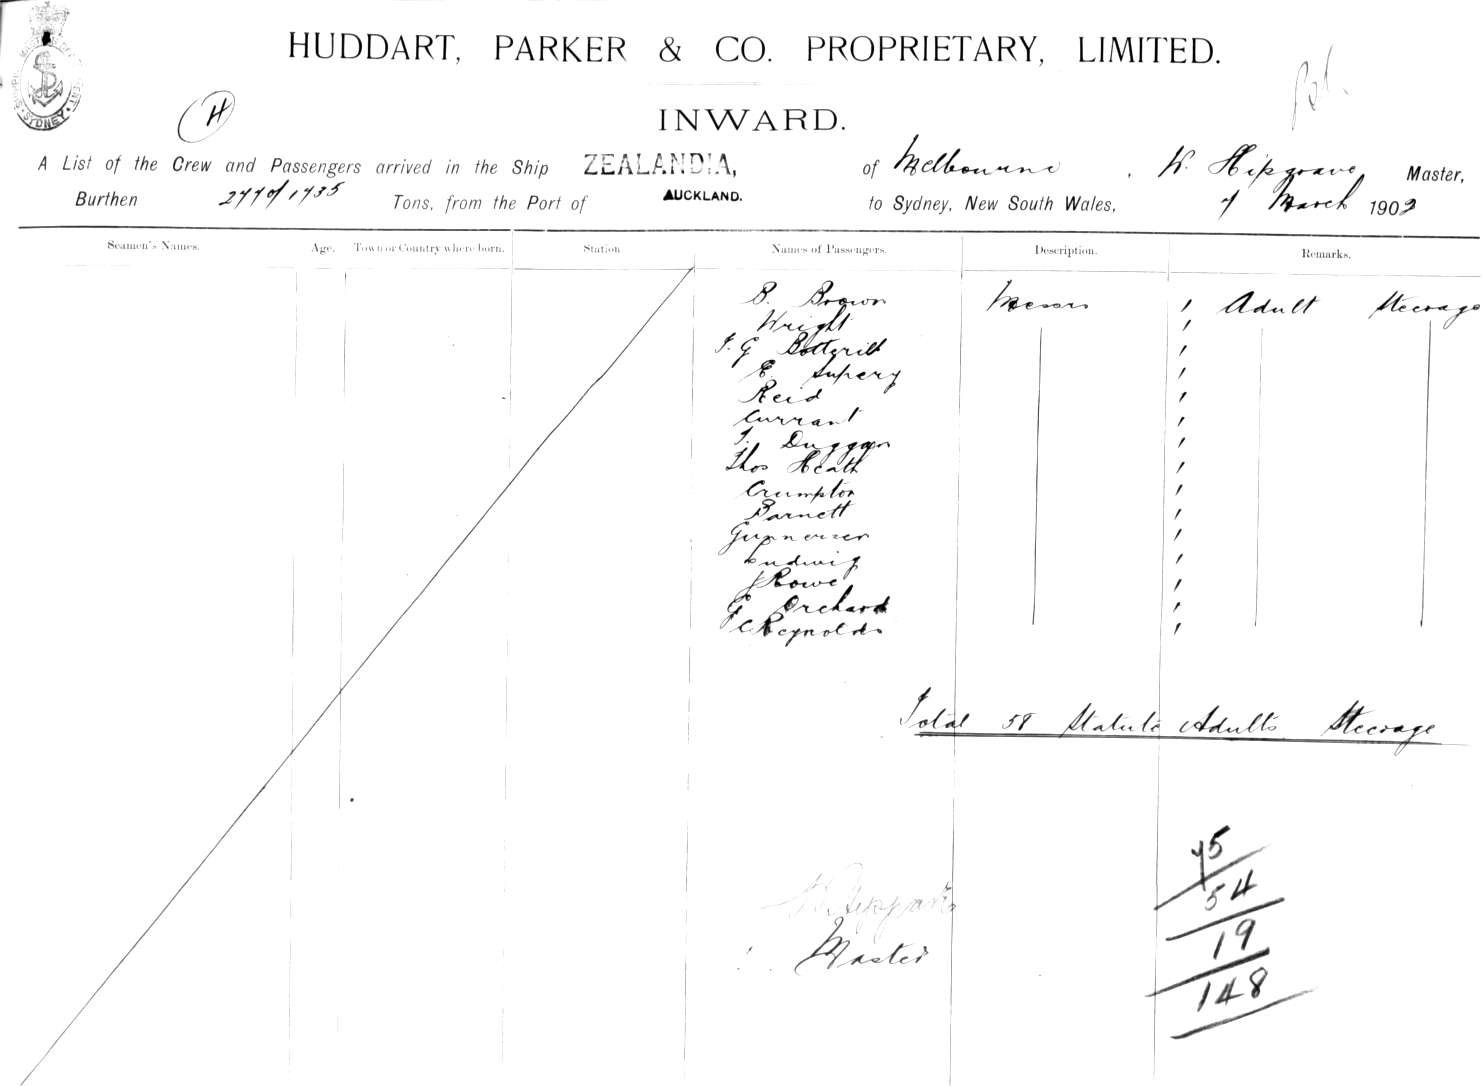 HUDDART, PARKER & CO. PROPRIETARY, LIMITED.
INWARD.
H
SYDNEY
A List of the Crew and Passengers arrived in the Ship ZEALANDIA, of Melbourne, W. Hipgrave Master,
Burthen Tons, from the Port of AUCKLAND. to Sydney, New South Wales, 7 March 1902
Seamen's Names. Age. Town or Country where born. Station Names of Passengers. Description. Remarks.
B. Brown Messrs , Adult Steerage
Wright ,
J. G Botterill ,
E. ,
Reid ,
Currant ,
J. Duggan ,
Thos Heath ,
Crumpton ,
Barnett ,
,
Ludwig ,
J Rowe ,
G Orchard ,
C Reynolds ,
Total 58 Statute Adults Steerage
75
54
19
148
Master